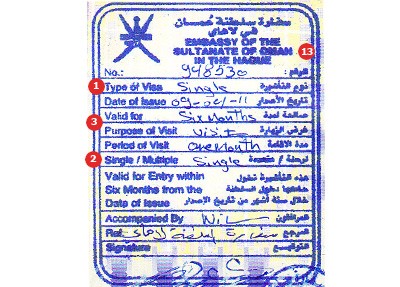 سفارة سلطنة عمان
في لاهاي
EMBASSY OF THE
SULTANATE OF OMAN
IN THE HAGUE
13
No.: 948530 الرقم:
1 Type of Visa Single نوع التأشيرة
Date of Issue تاريخ الأصدار
3 Valid for Six Months صالحة لمدة
Purpose of Visit Visit غرض الزيارة
Period of Visit one month مدة الاقامة
2 Single / Multiple Single لرحلة / متعددة
Valid for Entry within هذه التأشيرة تخول
Six Months from the حاملها دخول السلطنة
Date of Issue خلال ستة أشهر من تاريخ الإصدار
Accompanied By Nil المرافقون
Ref. المرجع
Signature التوقيع